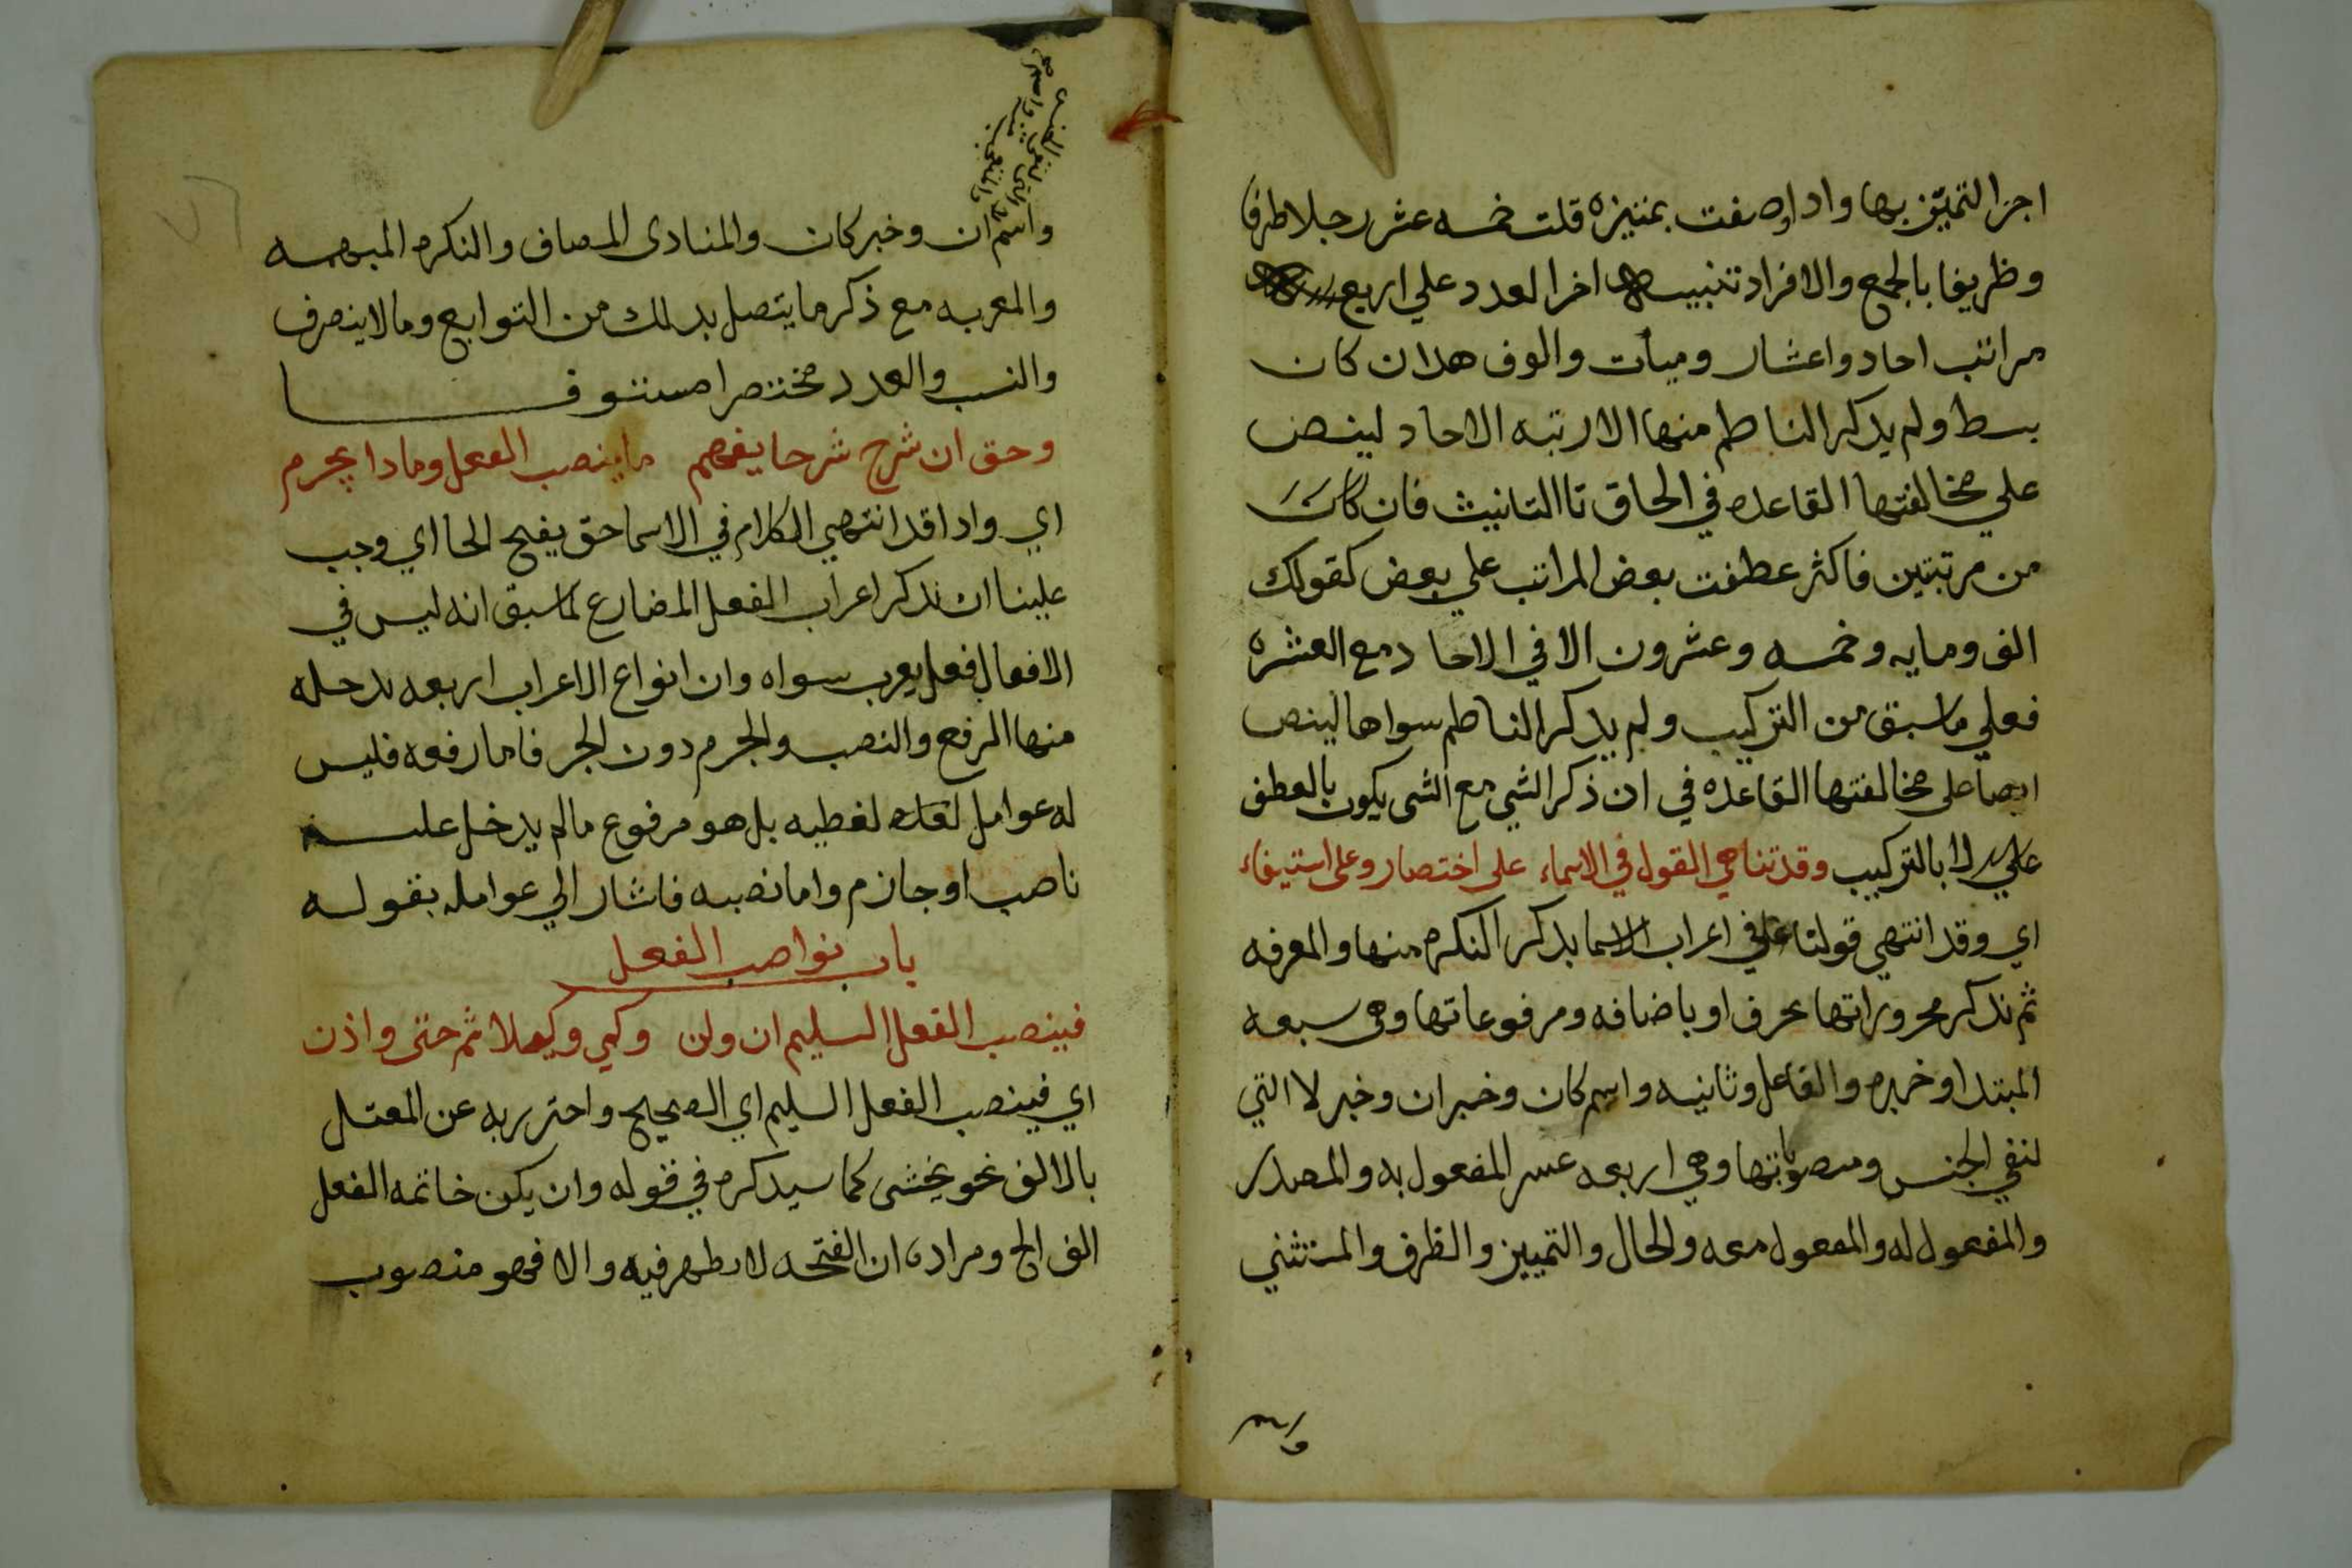 اجزا التميّز بها واذا وصفت بمتيزه قلت خمسه عشر رجلا طرفا
وظريفا بالجمع والافراد تنبيه اخر العدد علي اربع
مراتب احاد واعشار وميأت والوف هذا ان كان
بسط ولم يدكر الناطم منها الا رتبه الاحاد لينص
علي مخالفتها القاعده في الحاق تا التانيث فان كان
من مرتبتين فاكثر عطفت بعض المراتب علي بعض كقولك
الف ومايه وخمسه وعشرون الا في الاحاد مع العشره
فعلي ما سبق من التركيب ولم يدكر الناطم سواها لينص
ايصا على مخالفتها القاعده في ان ذكر الشي مع الشي يكون بالعطف
لا بالتركيب وقد تناهي القول في الاسماء على اختصار وعلى استيفاء
اي وقد انتهي قولنا في اعراب الاسما بدكر النكره منها والمعرفه
ثم ندكر مجروراتها بحرف او باضافه ومرفوعاتها وهي سبعه
المبتدا وخبره والفاعل ونائبه واسم كان وخبر ان وخبر لا التي
لنفي الجنس ومنصوباتها وهي اربعه عسر المفعول به والمصدر
والمفعول له والمفعول معه والحال والتمييز والظرف والمستثني
واسم
واسم ان وخبر كان والمنادى المصاف والنكره المبهمه
والمعربه مع ذكر ما يتصل بدلك من التوابع وما لا ينصرف
والنسب والعدد مختصرا مستوفا
وحق ان نشرح شرحا يفهم ما ينصب الفعل وما دا يجزم
اي واداقد انتهي الكلام في الاسما حق بفتح الحا اي وجب
علينا ان ندكر اعراب الفعل المضارع لما سبق انه ليس في
الافعال فعل يعرب سواه وان انواع الاعراب اربعه يدخله
منها الرفع والنصب والجزم دون الجر فاما رفعه فليس
له عوامل لفطيه بل هو مرفوع ما لم يدخل عليه
ناصب او جازم واما نصبه فاشار الي عوامله بقوله
باب نواصب الفعل
فينصب الفعل السليم ان ولن وكي وكيلا ثم حتى واذن
اي فينصب الفعل السليم اي الصحيح واحترز به عن المعتل
بالالف نحو يخشى كما سيدكره في قوله وان يكن خاتمه الفعل
الف الخ ومراده ان الفتحه لا تطهر فيه والا فهو منصوب